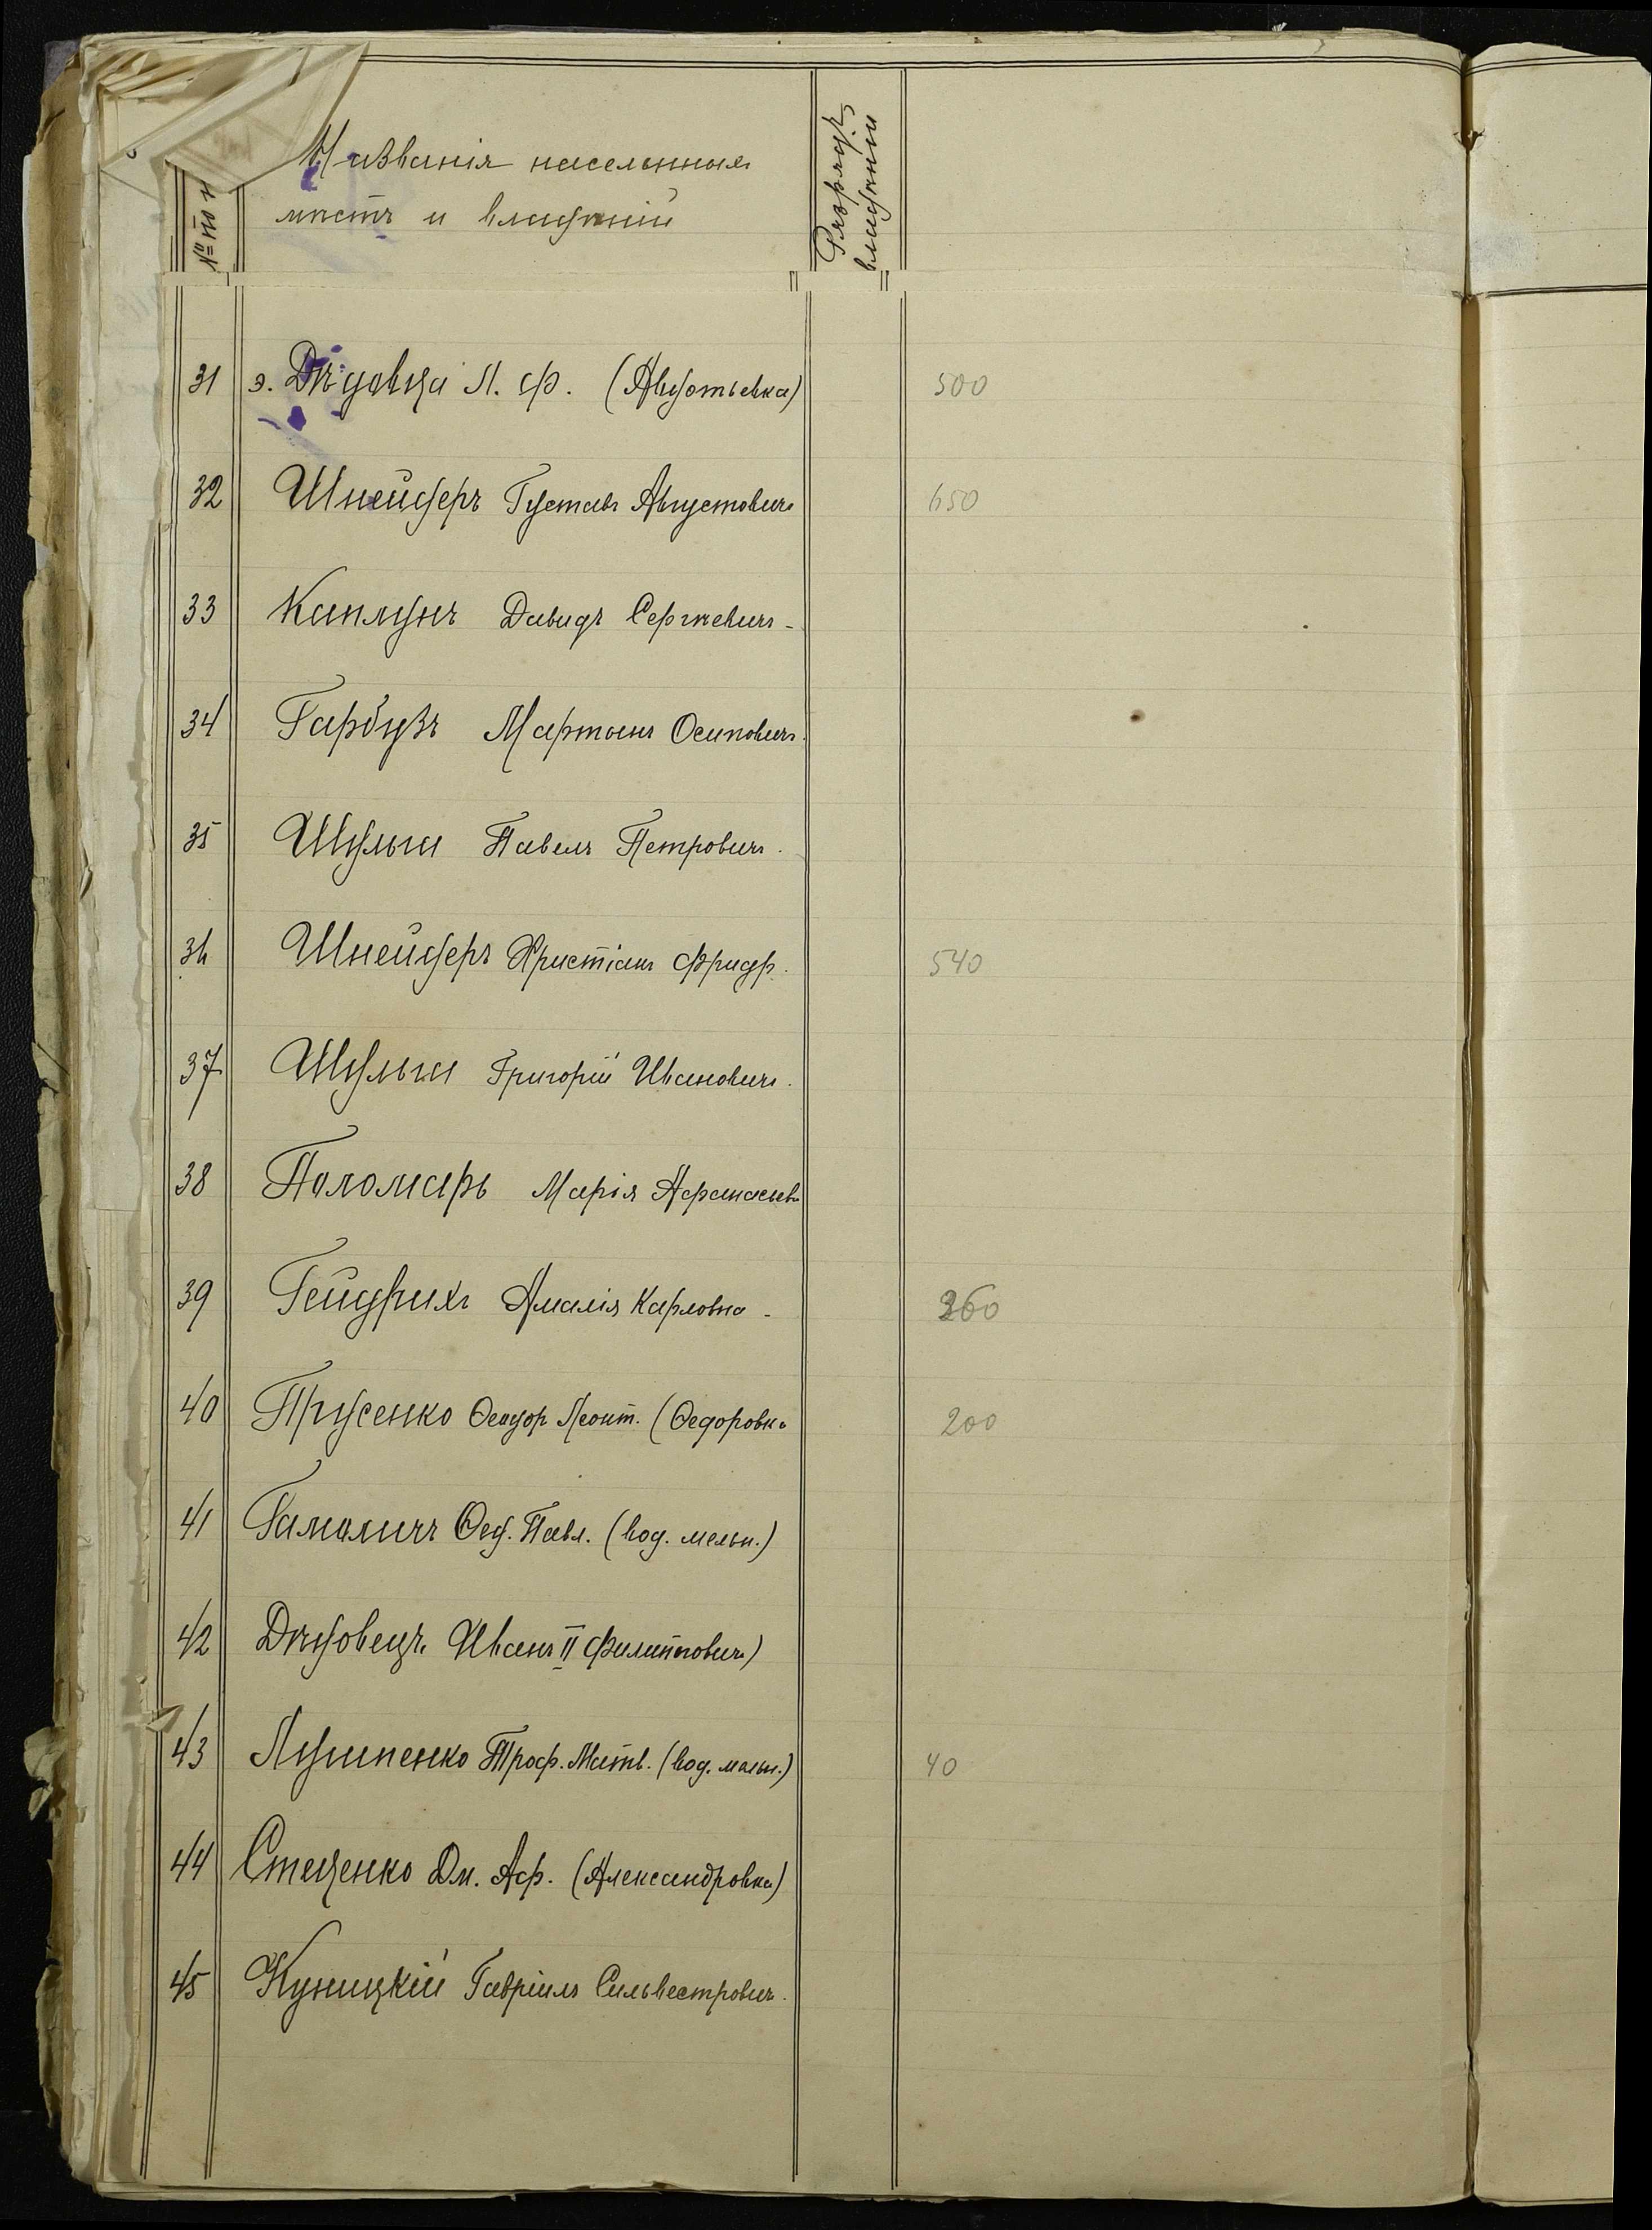 Названія населенныхъ
мѣстъ и владѣній
№№ по
Разрядъ
владѣній
31 э. Дѣдовца Л. Ф. (Авдотьевка) 500
32 Шнейдеръ Густавъ Августовичъ 650
33 Каплунъ Давидъ Сергѣевичъ -
34 Гарбузъ Мартынъ Осиповичъ.
35 Шульги Павелъ Петровичъ.
36 Шнейдеръ Христіанъ Фридр. 540
37 Шульги Григорій Ивановичъ.
38 Паломарь Марія Афанасьев
39 Гейдрихъ Амалія Карловна - 360
40 Прусенко Ѳеодор Леонт. (Ѳедоровка 200
41 Гамаличъ Ѳед. Павл. (вод. мельн.)
42 Дѣдовецъ Иванъ II Филипповичъ)
43 Троф. Матв. (вод. мельн.) 40
44 Стеценко Дм. Аф. (Александровка)
45 Куницкій Гавріилъ Сильвестровичъ.